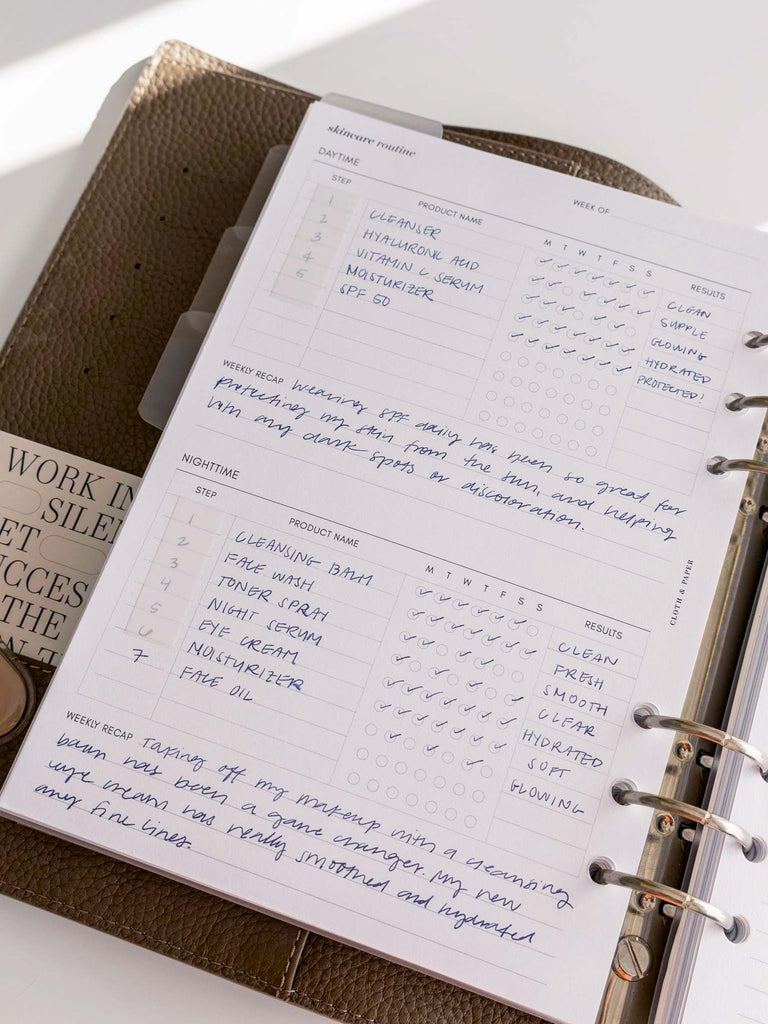 skincare routine
DAYTIME
WEEK OF
STEP PRODUCT NAME M T W T F S S RESULTS
1 CLEANSER CLEAN
2 HYALURONIC ACID SUPPLE
3 VITAMIN C SERUM GLOWING
4 MOISTURIZER HYDRATED
5 SPF 50 PROTECTED!
WEEKLY RECAP Wearing SPF daily has been so great for
protecting my skin from the sun, and helping
with any dark spots or discoloration.
NIGHTTIME
STEP PRODUCT NAME M T W T F S S RESULTS
1 CLEANSING BALM CLEAN
2 FACE WASH FRESH
3 TONER SPRAY SMOOTH
4 NIGHT SERUM CLEAR
5 EYE CREAM HYDRATED
6 MOISTURIZER SOFT
7 FACE OIL GLOWING
WEEKLY RECAP Taking off my makeup with a cleansing
balm has been a game changer. My new
eye cream has really smoothed and hydrated
any fine lines.
CLOTH & PAPER
WORK IN
SILEN
ET
UCCESS
THE